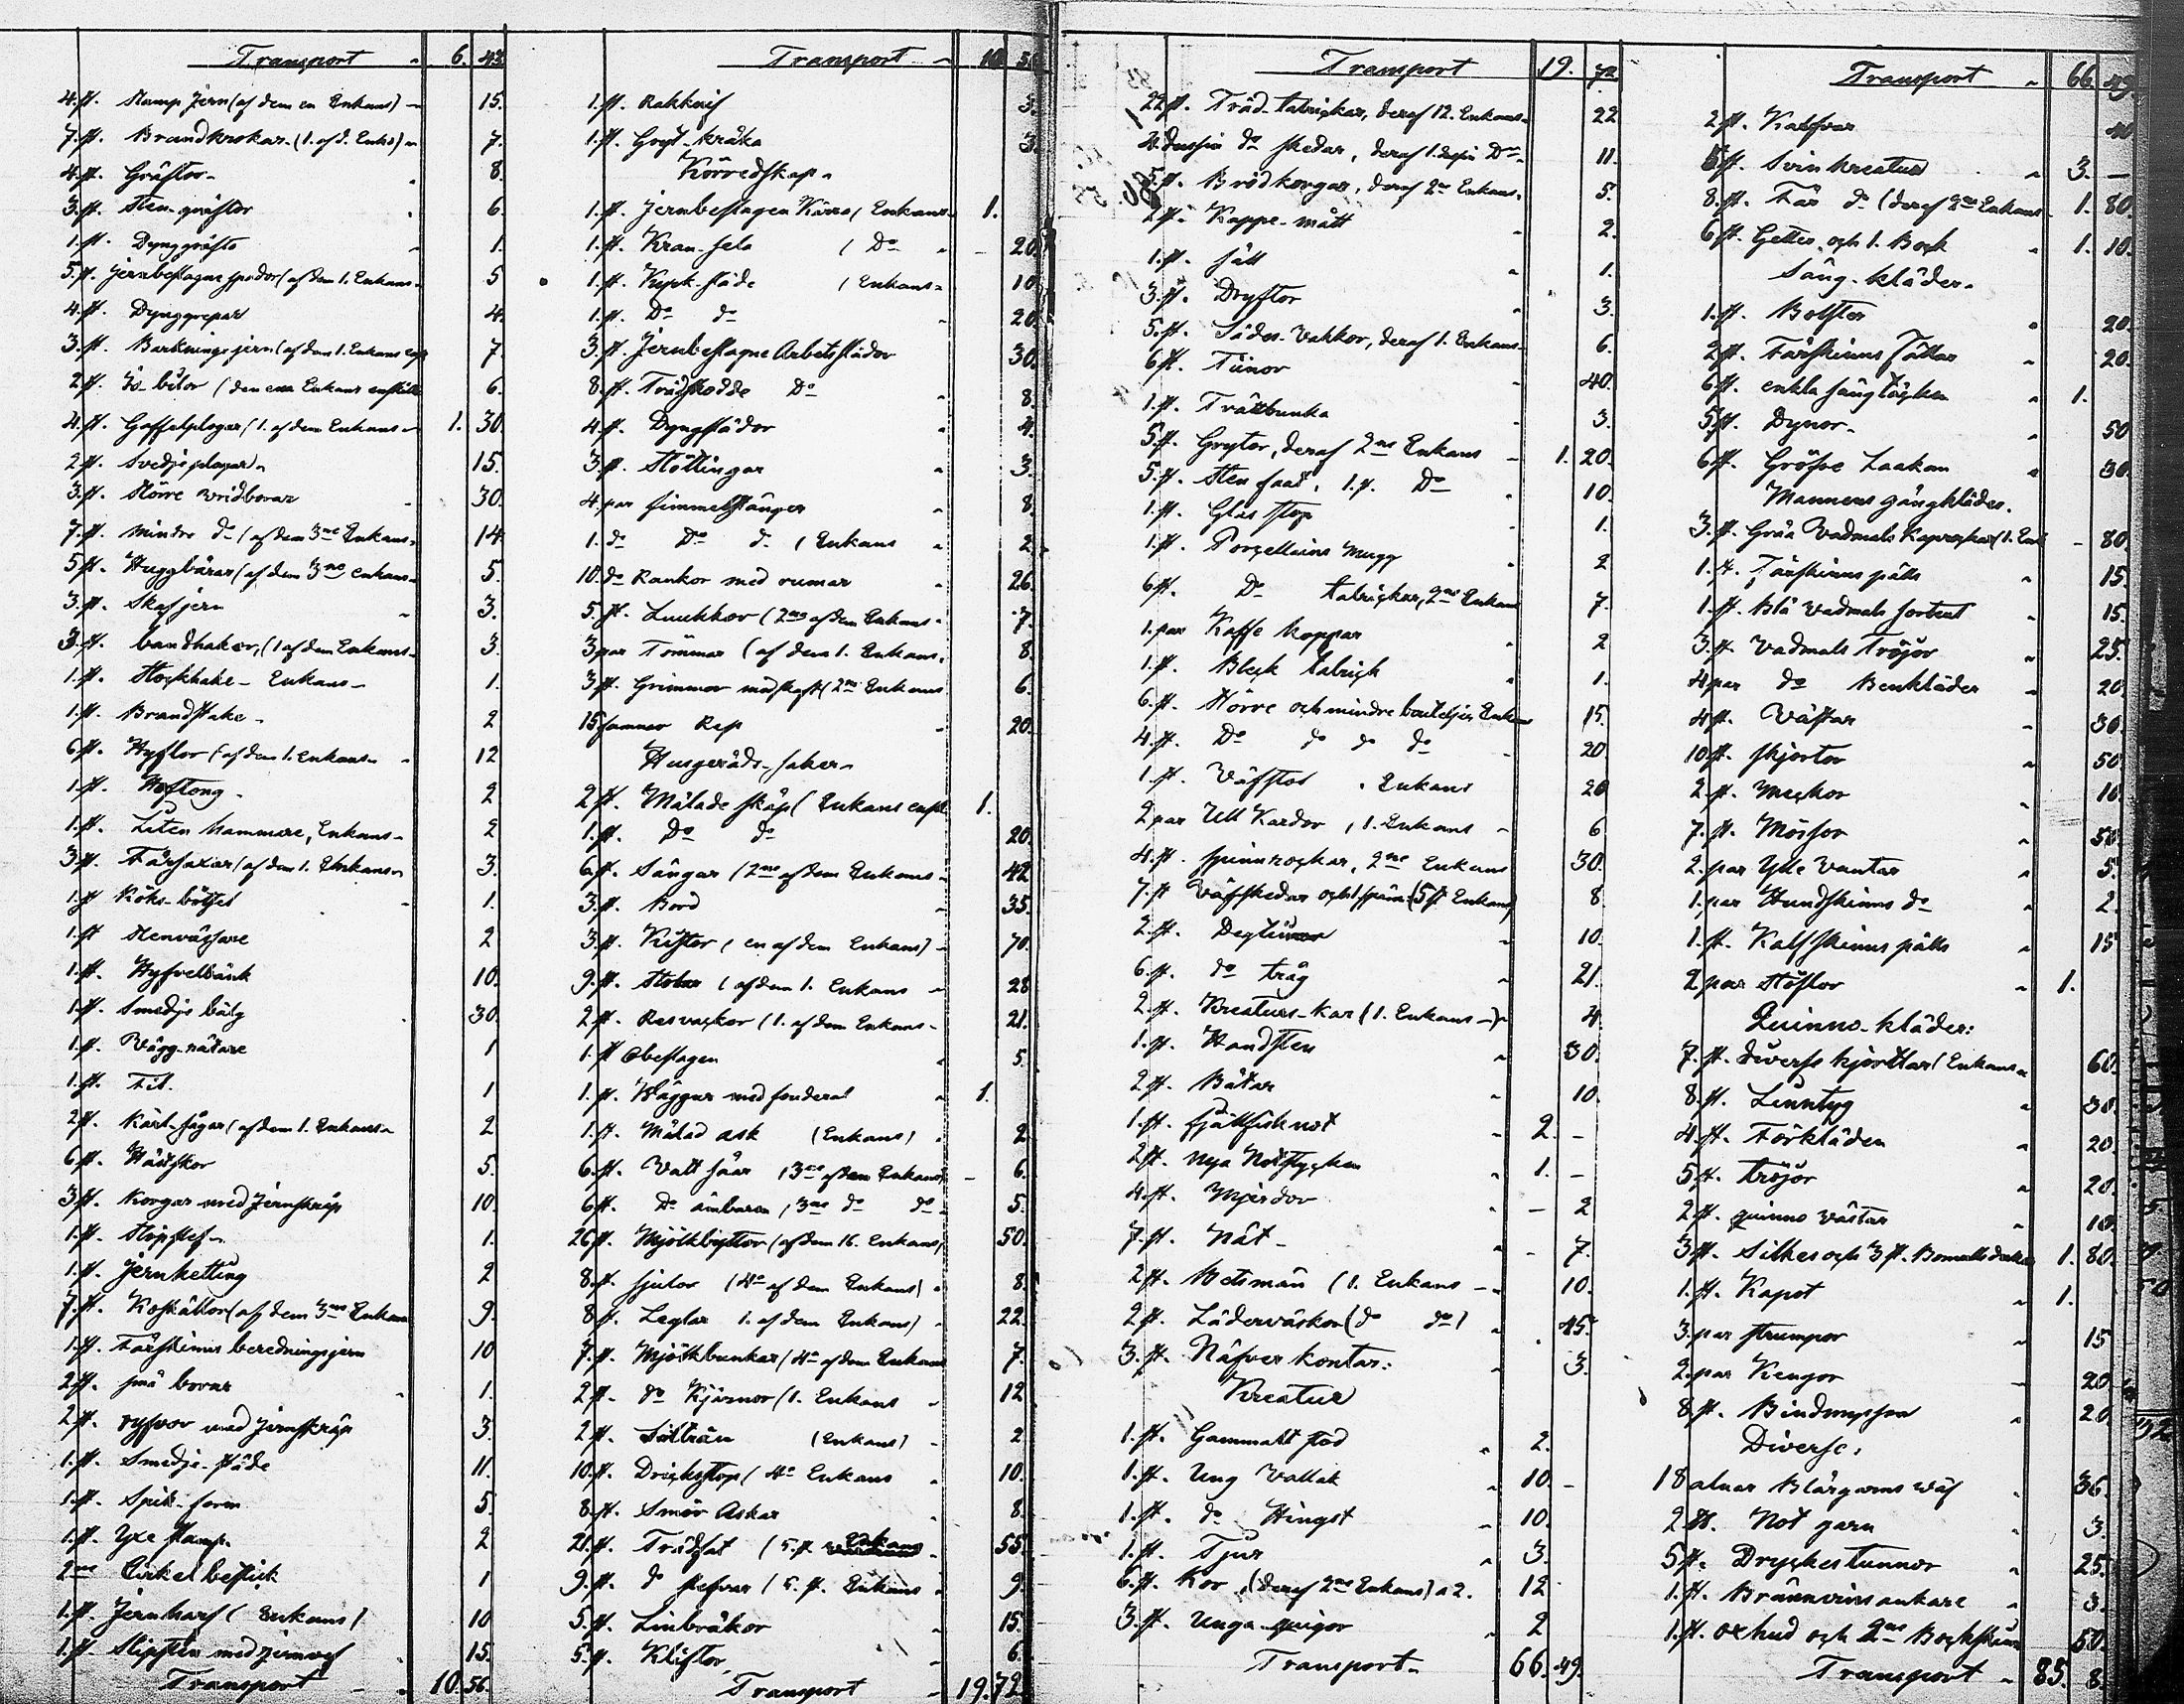 Transport " 6. 43.
4. st. Stamp Jern (af dem en Enkans) 15.
7. st. Brandkrokar (1. af d. Enks) 7.
4. st. Gräftor 8.
3. st. Sten-gräftor 6.
1. st. Dynggräfta 1.
5. st. jernbeslagne spador (af dem 1. Enkans 5
4. st. Dynggrepar 4.
3. st. Barknings jern (af dem 1. Enkans 7
2. st. Is-bilor (den ena Enkans enskilt 6.
4. st. Gaffelplogar (1. af dem Enkans 1. 30.
2. st. Svedjeplogar 15.
3. st. Större vridborar 30.
7. st. mindre do (af dem 3ne Enkans 14
5. st. Huggbärar (af dem 3ne enkans 5.
3. st. Skafjern 3.
3. st. bandhakor, (1 af dem Enkans 3
1. st. Stockhake - Enkans 1.
1. st. Brandstake 2
6. st. Hyflor (af dem 1. enkans 12
1. st. Hoftong 2
1. st. Liten hammare, Enkans 2
3. st. Fårsaxar (af dem 1. Enkans 3.
1. st. Köks-bötsel 1.
1. st. Stenvässare 2
1. st. Hyfvelbänk 10.
1. st. Smedje bälg 30.
1. st. Vägg-nätare 1
1. st. Fil. 1
2. st. Kärl-sågar (af dem 1. Enkans 2
6. st. Hästskor 5.
3. st. Korgar med Jernskräp 10.
1. st. Slipstef 1.
1. st. Jernketting 2
7. st. Koskällor (af dem 3ne Enkans 9.
1. st. Fårskinns beredningsjern 10
2. st. små borar 1.
2. st. ryssor med jernskräp 3.
1. st. Smedje-släde 11.
1. st. Spik-form 5.
1. st. Yxe stamp. 2
2ne Cirkel bestick 1
1. st. Jernharf (Enkans) 10
1. st. Slipsten med jernvef 15.
Transport 10. 56.
Transport 10 56
1. st. Rakknif 3.
1. st. Gryt-kräka 3.
Körredskap
1. st. jernbeslagen Kärra (Enkans 1.
1. st. Kran-sela (Do 20.
1. st. Kyrk-släde (Enkans 10
1. st. Do do 20.
3. st. Jernbeslagne Arbetsslädor 30.
8. st. Trädskodde Do 8.
4. st. Dyngslädor 4.
3. st. Stöttingar 3.
4. par fimmelstänger 8.
1. do Do do (Enkans 2.
10. do Rankor med rumar 26.
5. st. Luukkor (2ne af dem Enkans 7
3. par Tömmar (af dem 1. Enkans 8.
3. st. Grimmor med skaft (2ne Enkans 6.
15 famnar Rep 20.
Husgeråds-saker
2. st. Målade skåp (Enkans ensk 1.
1. st. Do do 20.
6. st. Sängar (2ne af dem Enkans 42.
3. st. Bord 35.
3. st. Kistor (en af dem Enkans) 70.
9. st. Stolar (af dem 1. Enkans 28
2. st. Resvackor (1. af dem Enkans 21.
1. st Obeslagen 5.
1. st. Väggur med foderal 1.
1. st. Målad ask (Enkans) 2
6. st. Vatt såar (3ne af dem Enkans) 6.
6. st. Do ämbaren, 3ne do do 5.
26. st. Mjölkbyttor (af dem 16. Enkans, 50.
8. st. Fjulor (4a af dem Enkans) 8.
8. st. Leglar 1. af dem Enkans) 22.
7. st. Mjölkbunkar (4a af dem Enkans 7.
2. st. do Kjärnor (1. Enkans 12
2. st. Siltråu (Enkans) 2
10. st. Drickstop (4a Enkans 10.
8. st. Smör Askar 8.
21. st. Trädfat (5. st. Enkans 55.
9. st. do skefvar (5. st. Enkans 9.
5. st. Linbråkor 15.
5. st. Klistor 6.
Transport 19. 72.
Transport 19. 72
22. st. Träd-talrickar, deraf 12. Enkans 22
2. dussin do skedar, deraf 1. dussin Do 11.
5. st. Brödkorgar, deraf 2ne Enkans 5.
2. st. Kappe-mått 2.
1. st. såll 1.
3. st. Dryftor 3.
5. st. Sädes-Vakkor, deraf 1. Enkans 6.
6. st. Tünor 40.
1. st. Trättbunka 3.
5. st. Grytor, deraf 2ne Enkans 1. 20.
5. st. Sten faat, 1. st. Do 10.
1. st. Glas stop 1.
1. st. Porcellains mugg 2
6. st. Do talrickar, 2ne Enkans 7.
1. par Kaffe koppar 2
1. st. Bleck talrick 1.
6. st. Större och mindre bouteljer Enkans 15.
4. st. Do do do do 20
1. st. Väfstol Enkans 20
2 par Ull Kardor, 1. Enkans 6
4. st. Spinnrockar, 2ne Enkans 30.
7. st Väfskedar och 1 späm (5 st Enkans) 8
2. st. Degtünor 10.
6. st. do tråg 21.
2. st. Kreaturs-Kar (1. Enkans) 4
1. st. Handsten 30.
2. st. Båtar 10.
1. st. fjällfisk not 2. -
2. st. nya Notstycken 1. -
4. st. Mjärdor - 2
7. st. Nät 7.
2. st. Betsmän (1. Enkans 10.
2. st. Läderväskor (do do) 45.
3. st. Näfver kontar: 3.
Kreatur
1. st. Gammalt stod 2.
1. st. Ung Vallak 10. -
1. st. do Hingst 10.
1. st. Tjur 3.
6. st. Kor (deraf 2ne Enkans) a 2. 12
3. st. Unga quigor 2
Transport 66. 49.
Transport 66. 49.
2. st. Kalfvar 40
5. st. Svin kreatur 3. -
8. st. Får do (deraf 2ne Enkans 1. 80.
6. st. Getter och 1. Bock 1. 10.
Säng-kläder.
1. st. Bolster 20.
2. st. Fårskinns fällar 20.
6. st. enkla sängtäcken 1.
5. st. Dynor 50
6. st. Gröfve Laakan 30.
Mannens gångkläder.
3. st. Gråa Vadmals Kaprockar (1. Enk - 80.
1. st. Fårskinns päls 15.
1. st. blå vadmals sortout 15.
3. st. Vadmals Tröjor 25.
4 par do Benkläder 20
4 st. Västar 30.
10. st. skjortor 50
2. st. Mackor 10.
7. st. Mössor 50.
2. par Ylle Vantar 5.
1. par Hundskinns do 2.
1. st. Kalfskinns päls 15
2 par Stöflor 1.
Quinno-kläder:
7. st. diverse kjorttlar (Enkans 60.
8. st. Linntyg 30.
4. st. Förkläden 20
5. st. tröjor 20.
2. st. quinno västar 10.
3. st. Silkes och 3 st. Bomulls dukar 1. 80.
1. st. Kapot 1.
3. par strumpor 15
2. par Kengor 20
8. st. Bindmyssor 20
Diverse:
18 alnar Blårgarns väf 36.
2. ℔. Not garn 3.
5. st. Dryckes tunnor 25.
1. st. Brännvins ankare 3.
1. st. oxhud och 2ne Bockskinn 50.
Transport 85. 8.